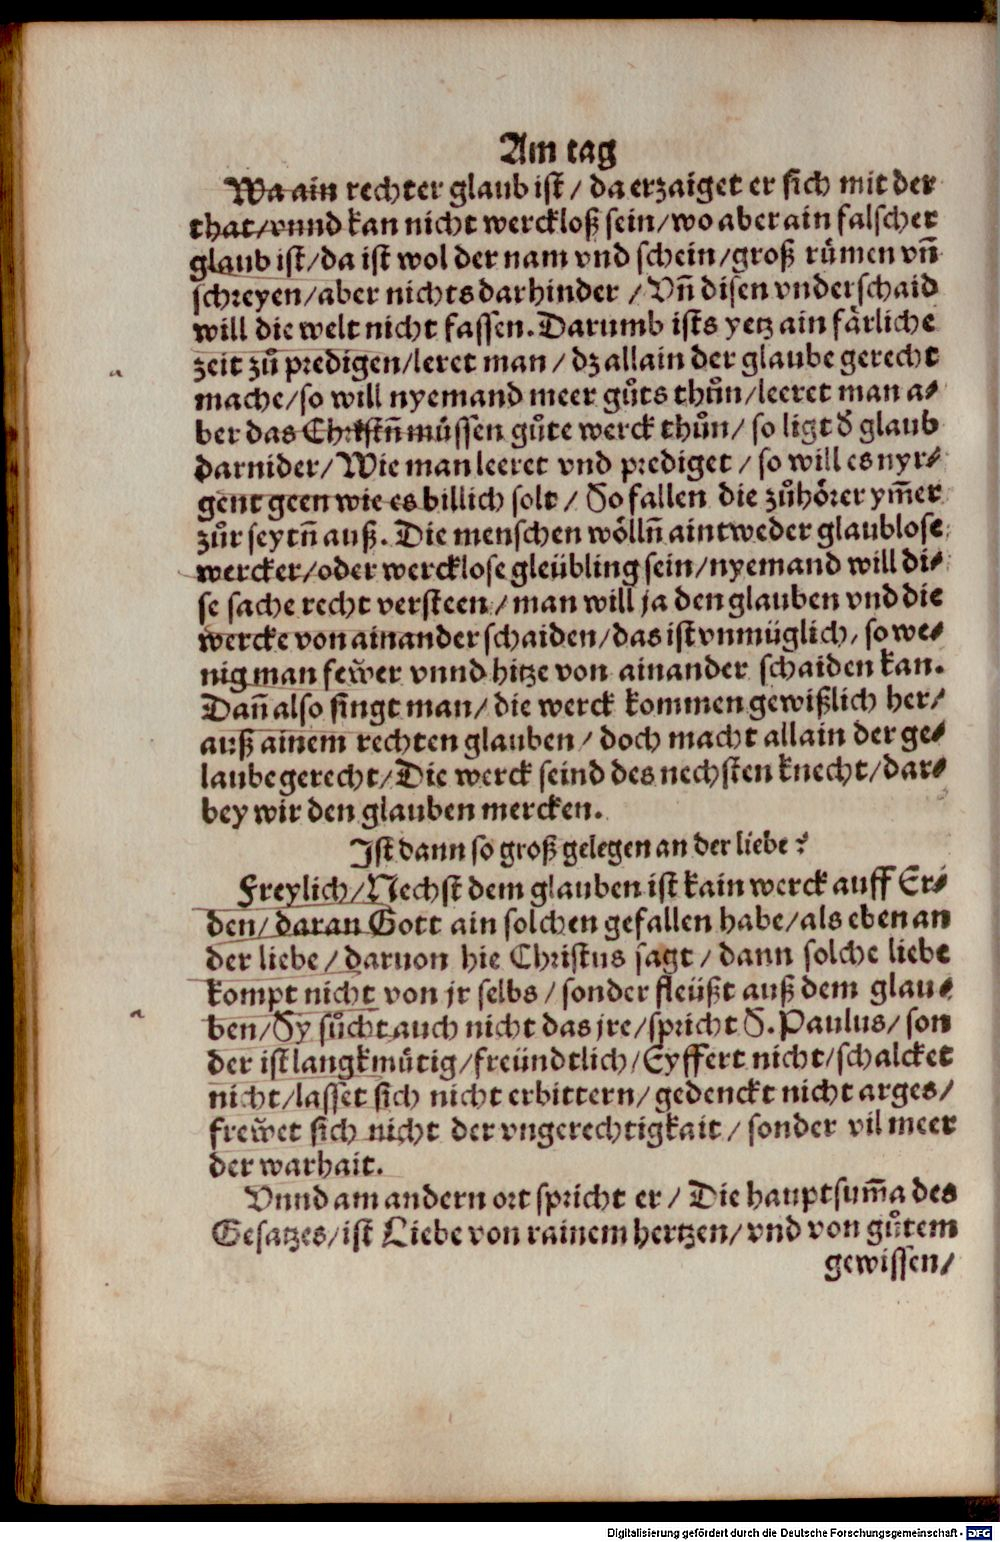 Am tag
Wa ain rechter glaub ist / da erzaiget er sich mit der
that / vnnd kan nicht werckloß sein / wo aber ain falscher
glaub ist / da ist wol der nam vnd schein / groß růmen vñ
schreyen / aber nichts darhinder / Vñ disen vnderschaid
will die welt nicht fassen. Darumb ists yetz ain fårliche
zeit zů predigen / leret man / dz allain der glaube gerecht
mache / so will nyemand meer gůts thůn / leeret man a⸗
ber das Christñ můssen gůte werck thůn / so ligt d̄ glaub
darnider / Wie man leeret vnd prediget / so will es nyr⸗
gent geen wie es billich solt / So fallen die zůhörer ym̄er
zůr seytñ auß. Die menschen wöllñ aintweder glaublose
wercker / oder wercklose gleübling sein / nyemand will di⸗
se sache recht versteen / man will ja den glauben vnd die
wercke von ainander schaiden / das ist vnmüglich, so we⸗
nig man fewer vnnd hitze von ainander schaiden kan.
Dañ also singt man / die werck kommen gewißlich her /
auß ainem rechten glauben / doch macht allain der ge⸗
laube gerecht / Die werck seind des nechsten knecht / dar⸗
bey wir den glauben mercken.
Ist dann so groß gelegen an der liebe?
Freylich / Nechst dem glauben ist kain werck auff Er⸗
den / daran Gott ain solchen gefallen habe / als eben an
der liebe / daruon hie Christus sagt / dann solche liebe
kompt nicht von jr selbs / sonder fleüßt auß dem glau⸗
ben / Sy sůcht auch nicht das jre / spricht S. Paulus / son
der ist langkmůtig / freündtlich / Eyffert nicht / schalcket
nicht / lasset sich nicht erbittern / gedenckt nicht arges /
frewet sich nicht der vngerechtigkait / sonder vil meer
der warhait.
Vnnd am andern ort spricht er / Die hauptsum̄a des
Gesatzes / ist Liebe von rainem hertzen / vnd von gůtem
gewissen /
Digitalisierung gefördert durch die Deutsche Forschungsgemeinschaft - DFG